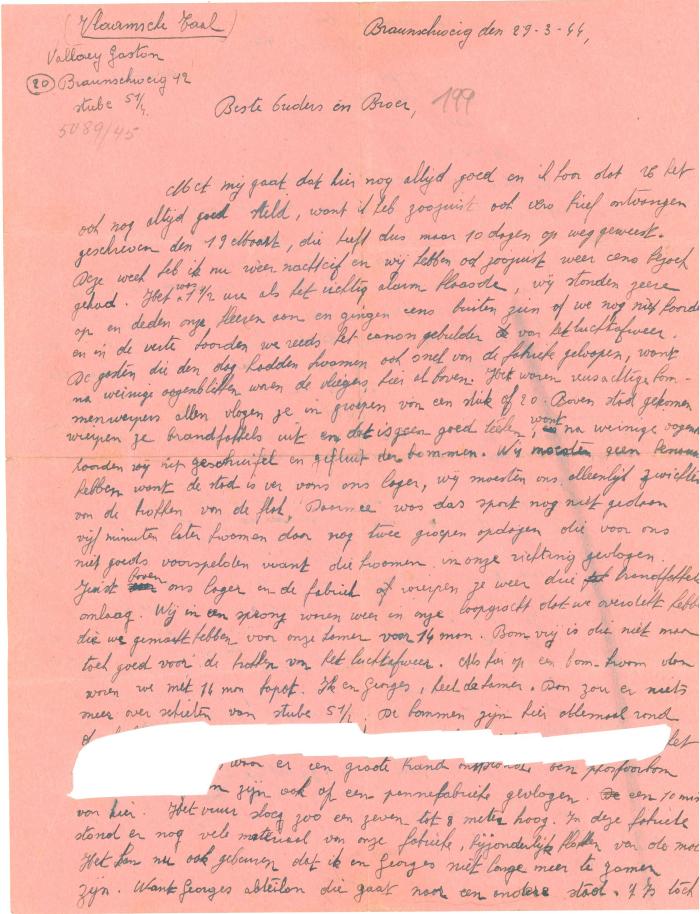 (Vlaamsche Taal)
Braunschweig den 29-3-44,
Vallaey Gaston
20 Braunschweig 42
stube 51/4.
5U 89/45
Beste Ouders en Broer, 199
Met mij gaat dat hier nog altijd goed en ik hoor dat U het
ook nog altijd goed steld, want ik heb zoojuist ook uwo brief ontvangen
geschreven den 19 Maart, die heeft dus maar 10 dagen op weg geweest.
Deze week heb ik nu weer nachtcif en wij hebben ook zoojuist weer eens bezoek
gehad. Het was 1 1/2 ure als het luchtig alarm blaasde, wij stonden zeere
op en deden onze kleeren aan en gingen eens buiten zien of we nog niet hoorde
en in de verte hoorden we reeds het canon gebulder van het luchtafweer.
De gasten die den dag hadden kwamen ook snel van de fabriek geloopen, want
na weinige oogenblikken waren de vliegers hier al boven. Het waren reusachtige bom-
menwerpers allen vlogen ze in groepen van een stuk of 20. Boven stad gekomen
wierpen ze brandfakkels uit en dat is geen goed teken, want na weinige oogen
hoorden wij het geschuifel en gefluit der bommen. Wij moesten geen
hebben want de stad is ver vans ons lager, wij moesten ons alleenlijk zwichten
van de brokken van de flak. Daarmee was das sport nog niet gedaan
vijf minuten later kwamen daar nog twee groepen opdagen die voor ons
niet goeds voorspelden want die kwamen in onze richting gevlogen.
Juist boven ons lager en de fabriek wierpen ze weer drie brandfakkels
omlaag. Wij in een sprong waren weer in onze loopgracht dat we overdekt hebb
die we gemaakt hebben voor onze kamer voor 14 man. Bom vrij is die niet maar
toch goed voor de brokken van het luchtafweer. Als hier op een bom kwam dan
waren we met 14 man kapot. Ik en Georges, heel de kamer. Dan zou er niets
meer over schieten van stube 51/4. De bommen zijn hier allemaal rond
het
, waar er een groote brand ontstond een phosfoorbom
n zijn ook op een pannefabrieke gevlogen. een 10 min
van hier. Het vuur sloeg zoo een zeven tot 8 meter hoog. In deze fabrieke
stond er nog vele materiaal van onze fabrieke, bijzonderlijk van de mo
Het kan nu ook gebeuren dat ik en Georges niet lange meer te zamen
zijn. Want Georges abteilon die gaat naar een andere stad. 't Is toch